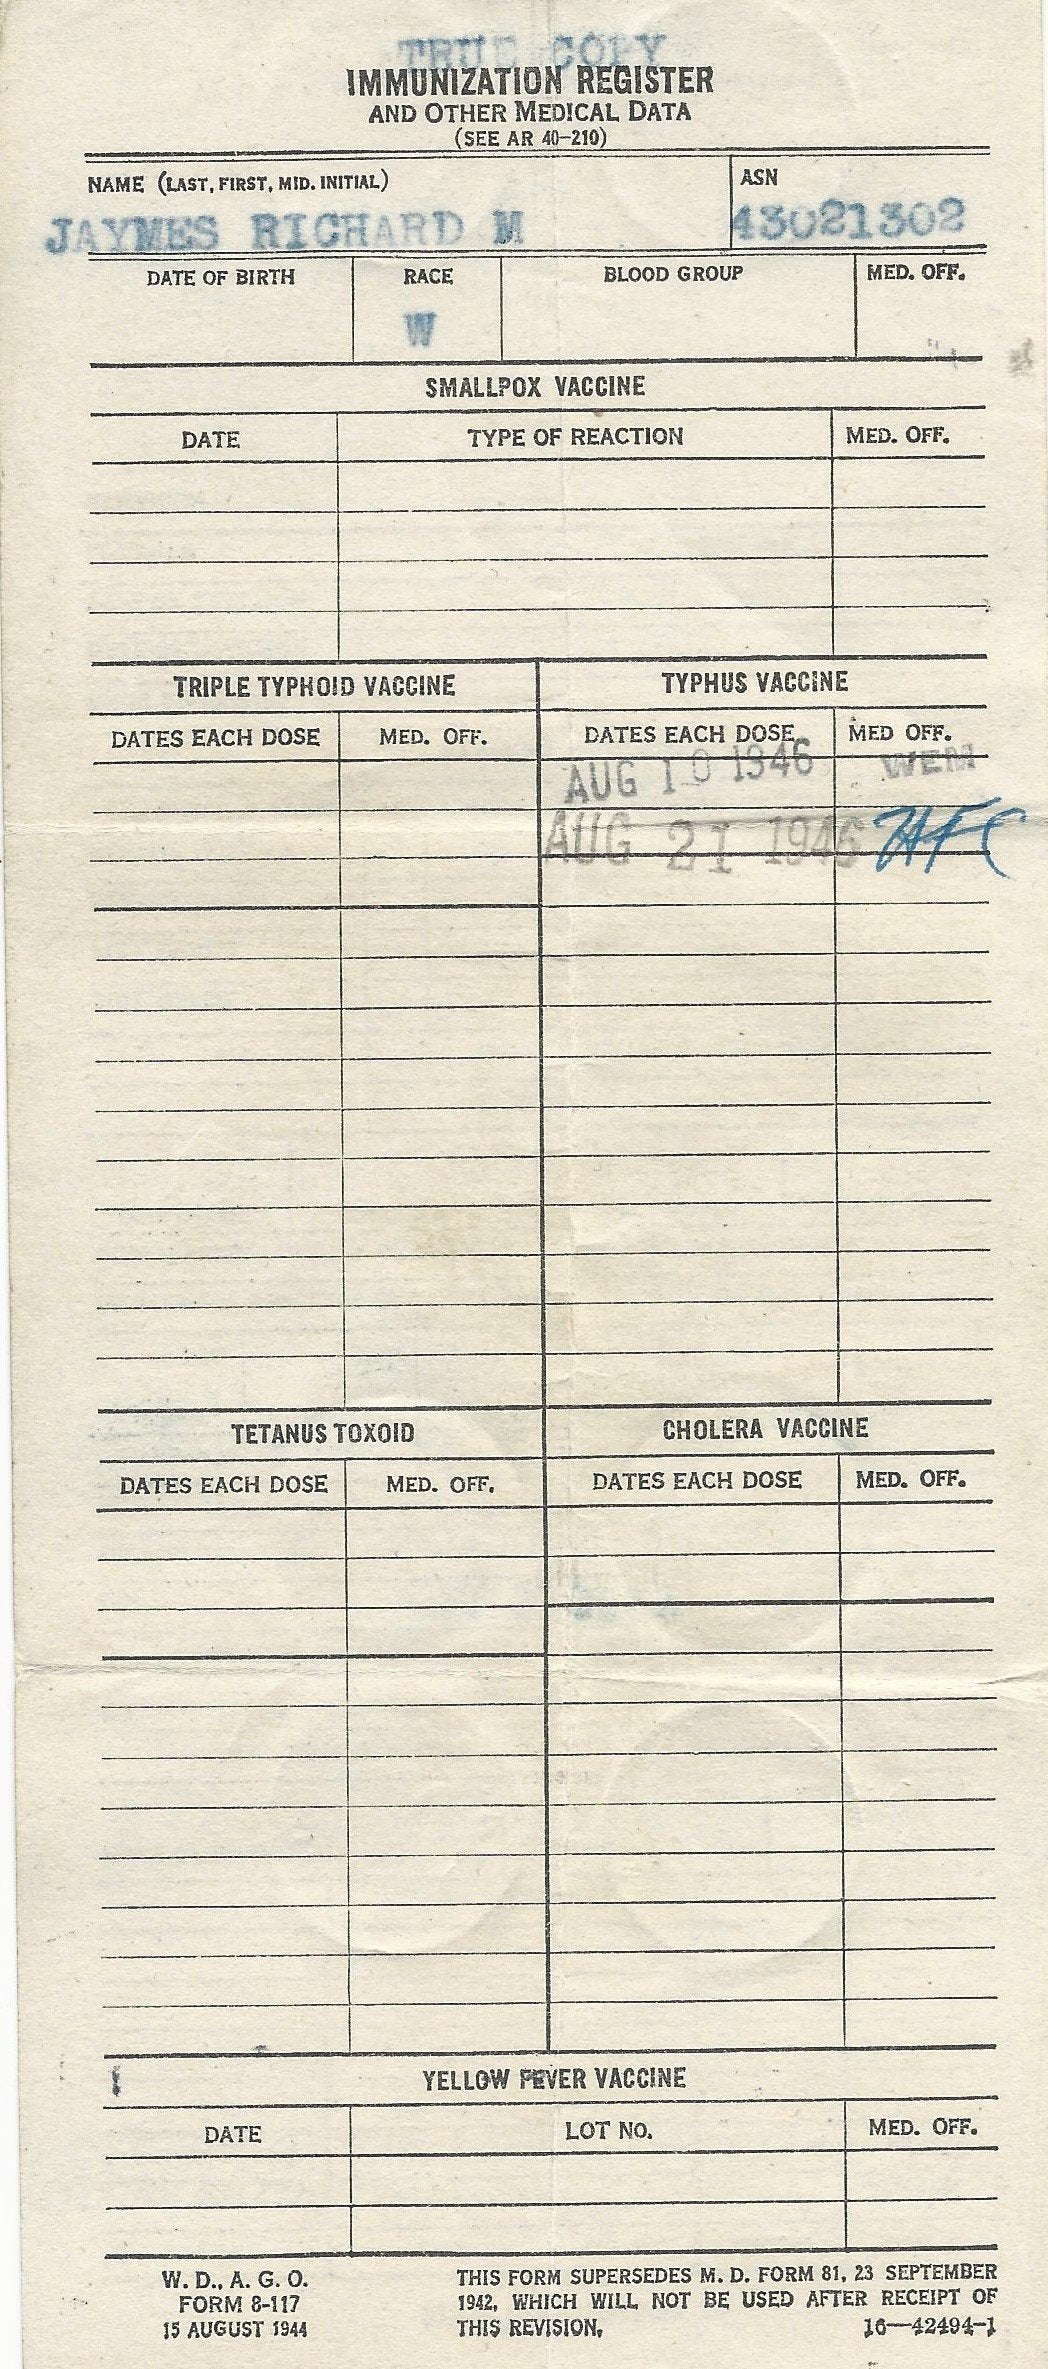 TRUE COPY
IMMUNIZATION REGISTER
AND OTHER MEDICAL DATA
(SEE AR 40-210)
NAME (LAST, FIRST, MID. INITIAL) ASN
JAYMES RICHARD M 43021302
DATE OF BIRTH RACE BLOOD GROUP MED. OFF.
W
SMALLPOX VACCINE
DATE TYPE OF REACTION MED. OFF.
TRIPLE TYPHOID VACCINE TYPHUS VACCINE
DATES EACH DOSE MED. OFF. DATES EACH DOSE MED OFF.
AUG 10 1946 WEM
AUG 21 1946 HFC
TETANUS TOXOID CHOLERA VACCINE
DATES EACH DOSE MED. OFF. DATES EACH DOSE MED. OFF.
YELLOW FEVER VACCINE
DATE LOT NO. MED. OFF.
W. D., A. G. O. THIS FORM SUPERSEDES M. D. FORM 81, 23 SEPTEMBER
FORM 8-117 1942, WHICH WILL NOT BE USED AFTER RECEIPT OF
15 AUGUST 1944 THIS REVISION. 16—42494-1